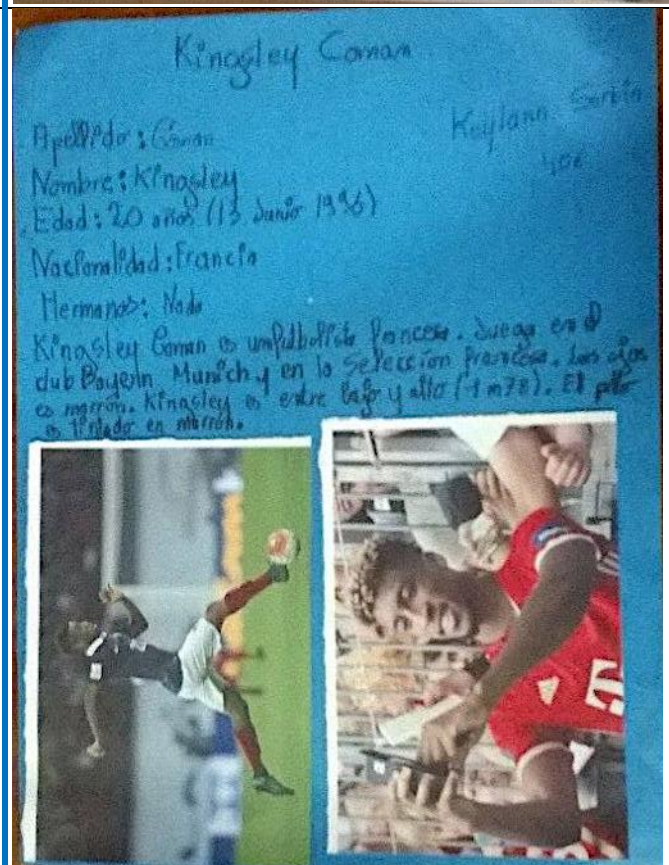 Kingsley Coman
Keylann
Apellido: Coman
Nombre: Kingsley
Edad: 20 años (13 Junio 1996)
Nacionalidad: Francia
Hermanos: Nada
Kingsley Coman es un futbolista francesa. Juega en el
club Bayern Munich y en la Seleccion francesa. Los ojos
es marrón. Kingsley es entre bajo y alto (1m78). El pelo
es tintado en marrón.
T